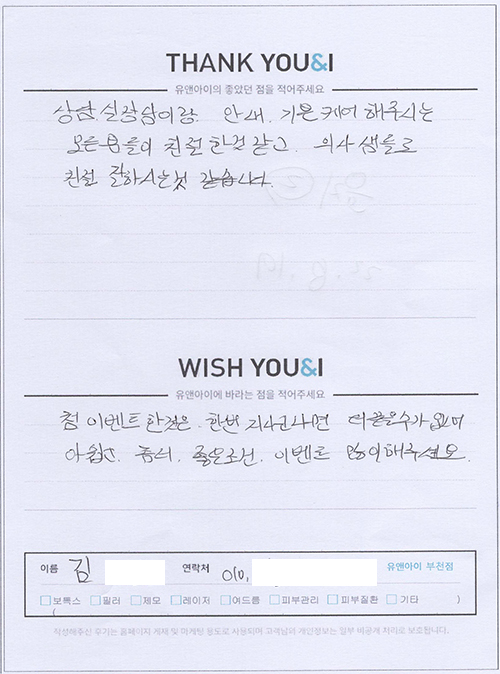 THANK YOU&I
유앤아이의 좋았던 점을 적어주세요
상담 실장님이랑. 안내. 기본케어 해주시는
모든분들이 친절한것 같고. 의사 샘들도
친절 잘하시는것 같습니다.
WISH YOU&I
유앤아이에 바라는 점을 적어주세요
첨 이벤트한것은. 한번 지나고나면 더끊을수가 없어
아쉽고. 좋은조건. 이벤트 많이해주세요.
이름 김 연락처 010. 유앤아이 부천점
보톡스 필러 제모 레이저 여드름 피부관리 피부질환 기타 )
(
작성해주신 후기는 홈페이지 게재 및 마케팅 용도로 사용되며 고객님의 개인정보는 일부 비공개 처리로 보호됩니다.